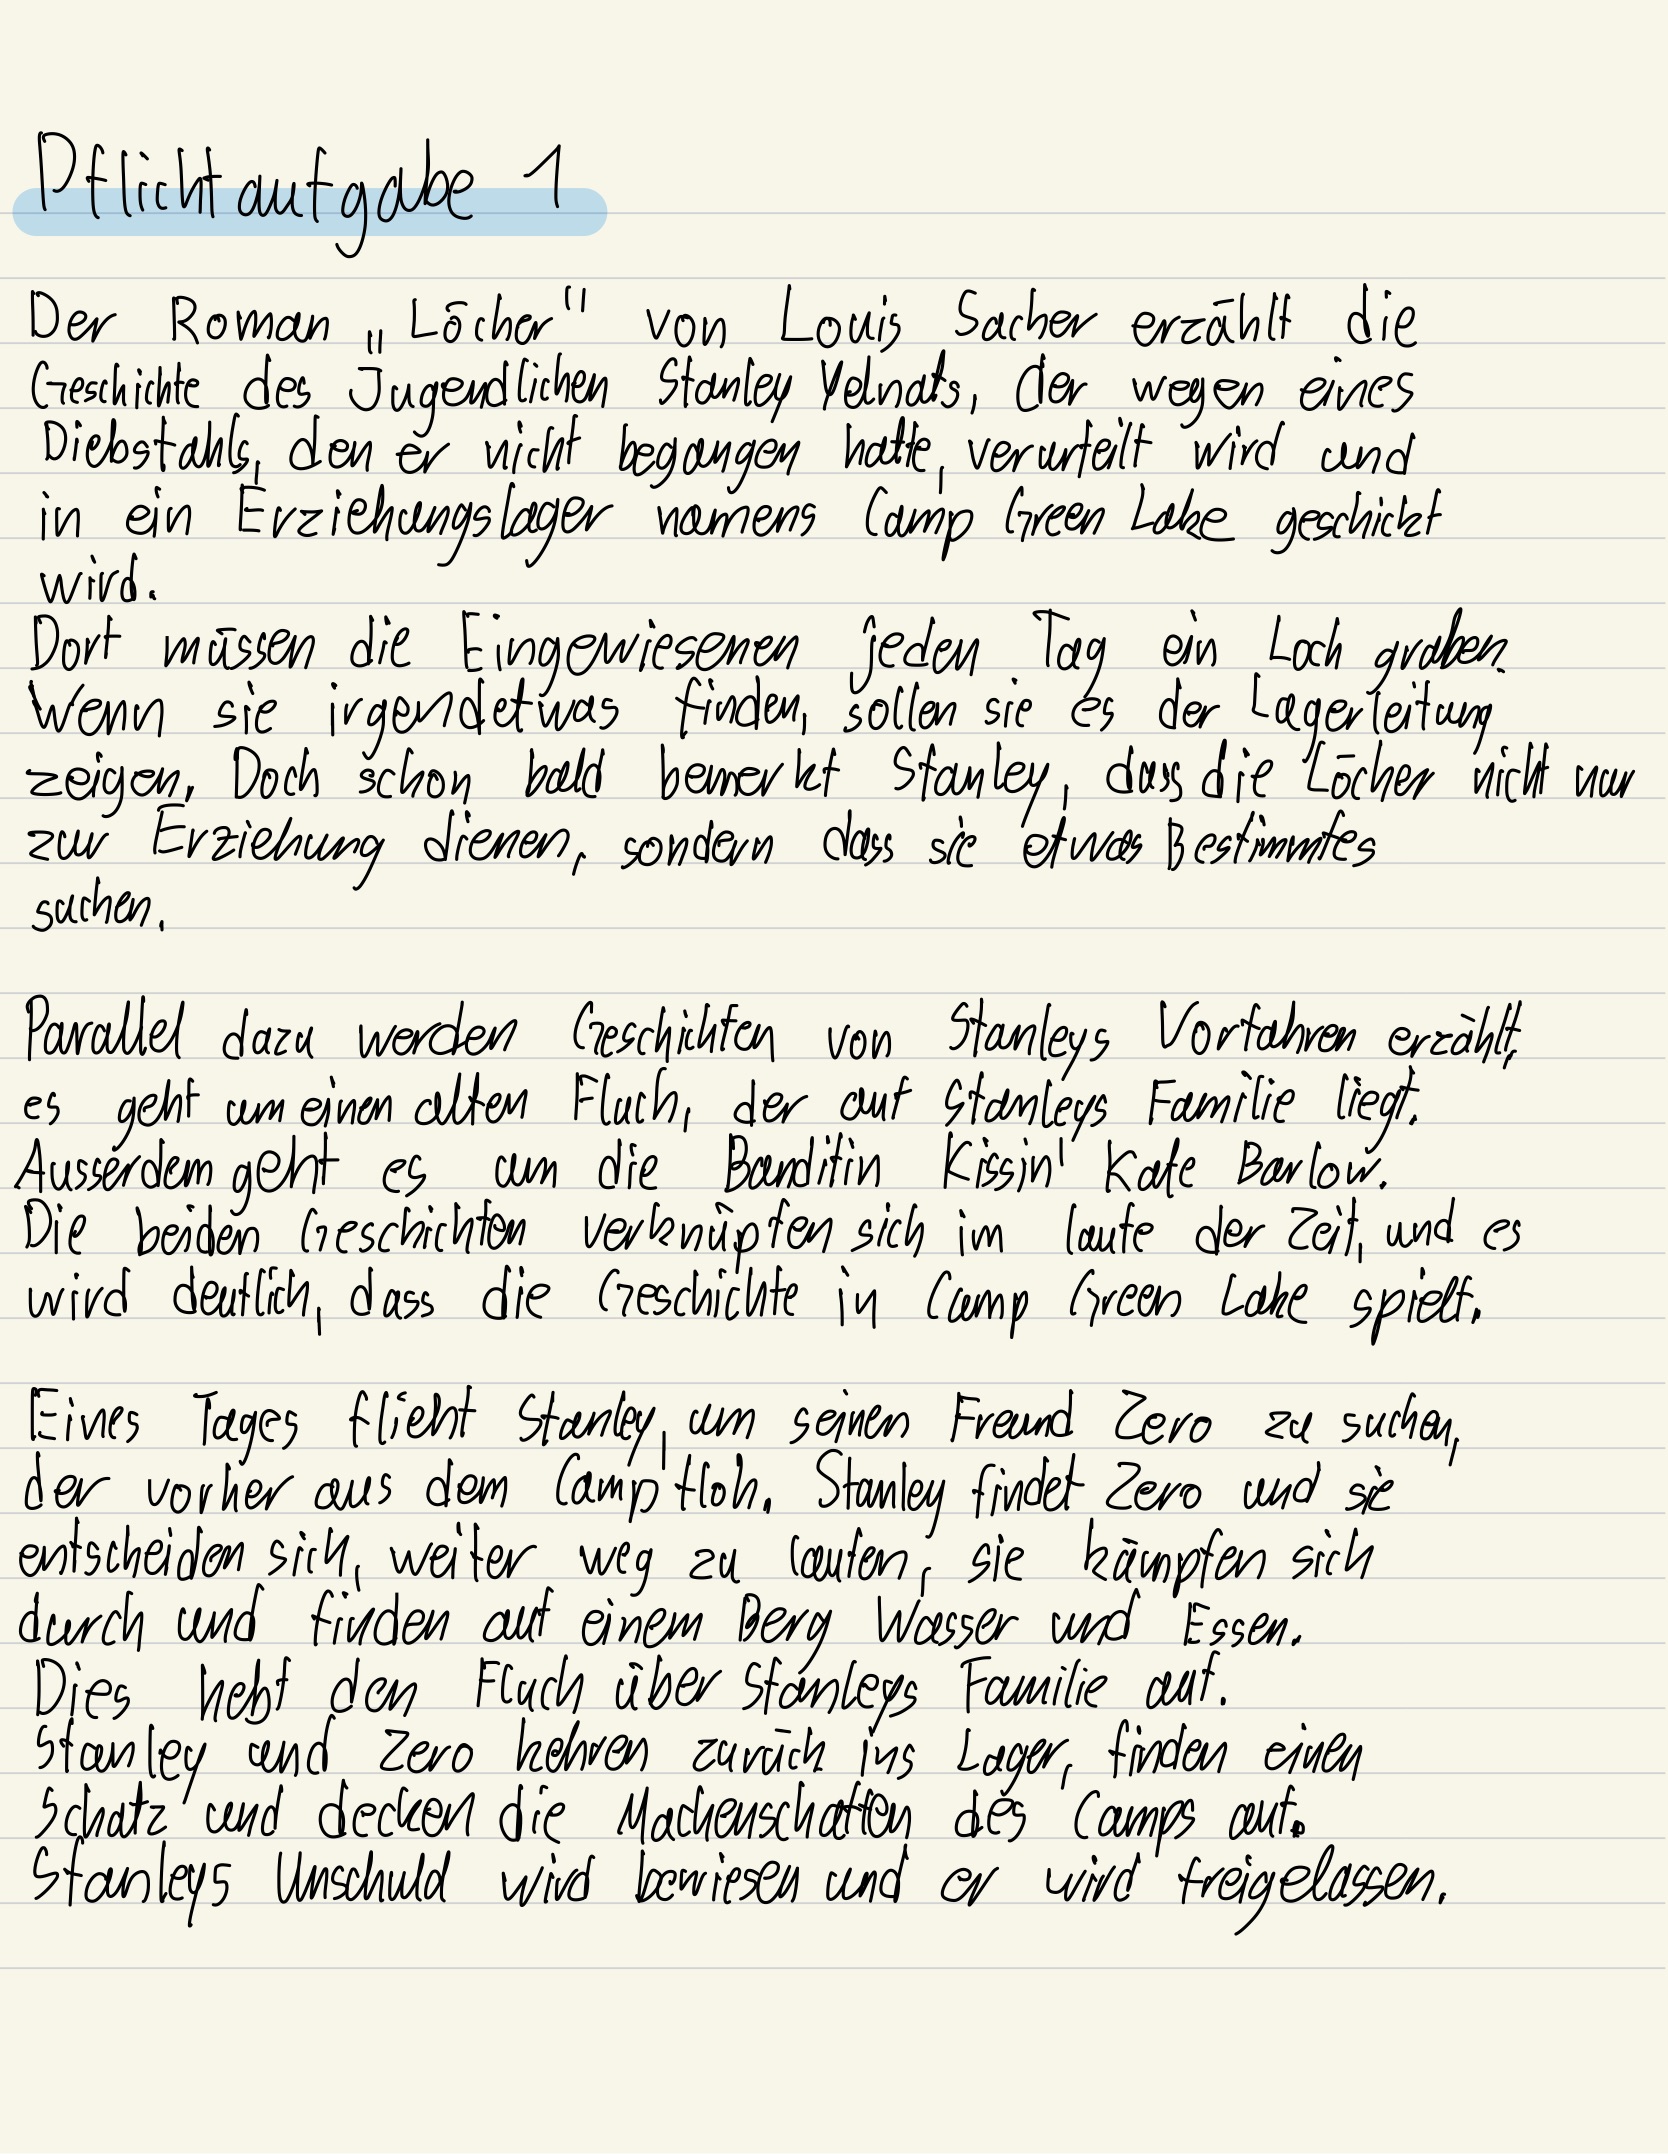 Pflichtaufgabe 1
Der Roman „Löcher" von Louis Sacher erzählt die
Geschichte des Jugendlichen Stanley Yelnats, der wegen eines
Diebstahls, den er nicht begangen hatte, verurteilt wird und
in ein Erziehungslager namens Camp Green Lake geschickt
wird.
Dort müssen die Eingewiesenen jeden Tag ein Loch graben.
Wenn sie irgendetwas finden, sollen sie es der Lagerleitung
zeigen. Doch schon bald bemerkt Stanley, dass die Löcher nicht nur
zur Erziehung dienen, sondern dass sie etwas Bestimmtes
suchen.
Parallel dazu werden Geschichten von Stanleys Vorfahren erzählt,
es geht um einen alten Fluch, der auf Stanleys Familie liegt.
Ausserdem geht es um die Banditin Kissin' Kate Barlow.
Die beiden Geschichten verknüpfen sich im laufe der Zeit, und es
wird deutlich, dass die Geschichte in Camp Green Lake spielt.
Eines Tages flieht Stanley, um seinen Freund Zero zu suchen,
der vorher aus dem Camp floh. Stanley findet Zero und sie
entscheiden sich, weiter weg zu laufen, sie kämpfen sich
durch und finden auf einem Berg Wasser und Essen.
Dies hebt den Fluch über Stanleys Familie auf.
Stanley und Zero kehren zurück ins Lager, finden einen
Schatz und decken die Machenschaften des Camps auf.
Stanleys Unschuld wird bewiesen und er wird freigelassen.